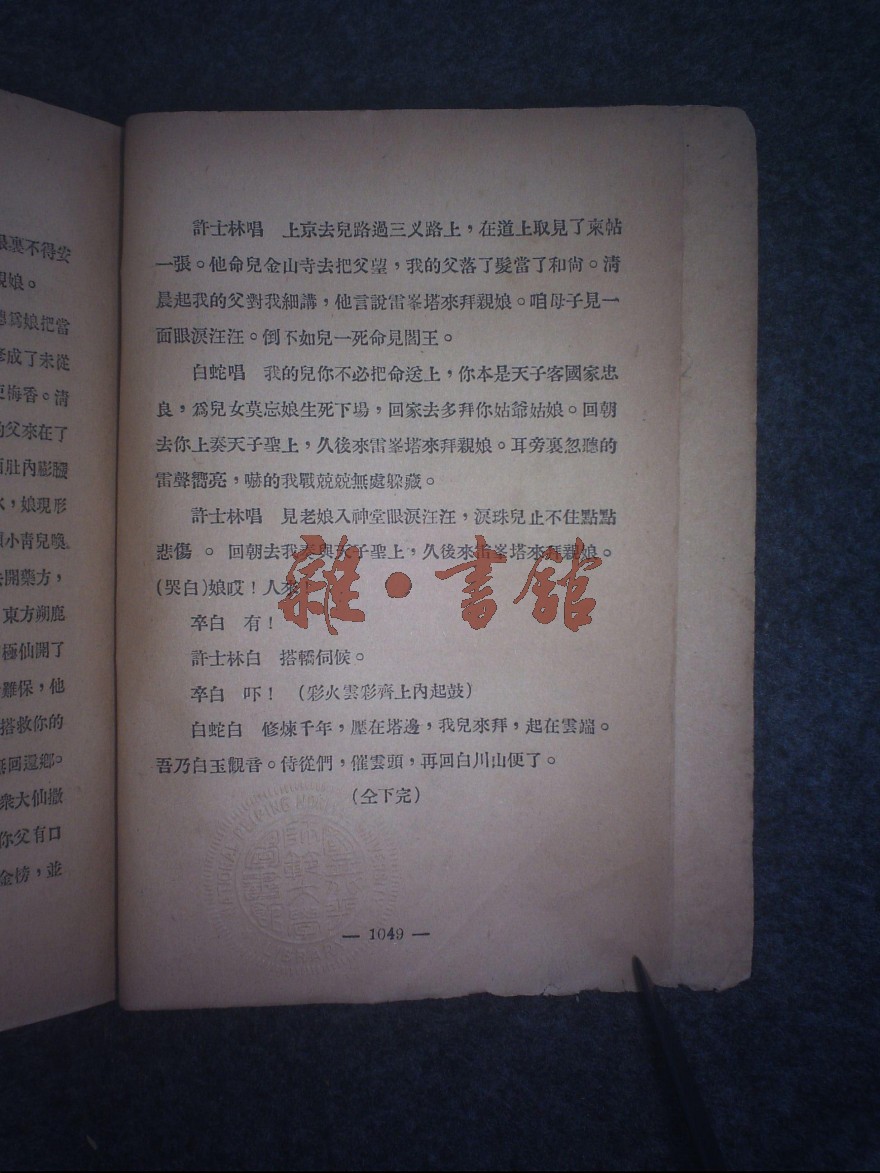 眼裏不得安
親娘。
爲娘把當
修成了未從
梅香。清
的父來在了
肚內膨膃
娘現形
小靑兒喚
去開藥方，
東方朔鹿
極仙開了
難保，他
搭救你的
無回還鄉。
衆大仙撤
你父有口
金榜，並
許士林唱　上京去兒路過三义路上，在道上取見了柬帖
一張。他命兒金山寺去把父望，我的父落了髮當了和尙。清
晨起我的父對我細講，他言說雷峯塔來拜親娘。咱母子見一
面眼淚汪汪。倒不如兒一死命見閻王。
白蛇唱　我的兒你不必把命送上，你本是天子客國家忠
良，爲兒女莫忘娘生死下塲，回家去多拜你姑爺姑娘。回朝
去你上奏天子聖上，久後來雷峯塔來拜親娘。耳旁裏忽聽的
雷聲嚮亮，嚇的我戰兢兢無處躲藏。
許士林唱　見老娘入神堂眼淚汪汪，淚珠兒止不住點點
悲傷。回朝去我奏與天子聖上，久後來雷峯塔來拜親娘。
(哭白)娘哎！人來！
卒白　有！
許士林白　搭轎伺候。
卒白　吓！（彩火雲彩齊上內起鼓）
白蛇白　修煉千年，壓在塔邊，我兒來拜，起在雲端。
吾乃白玉觀音。侍從們，催雲頭，再回白川山便了。
（仝下完）
— 1049 —
雜·書館